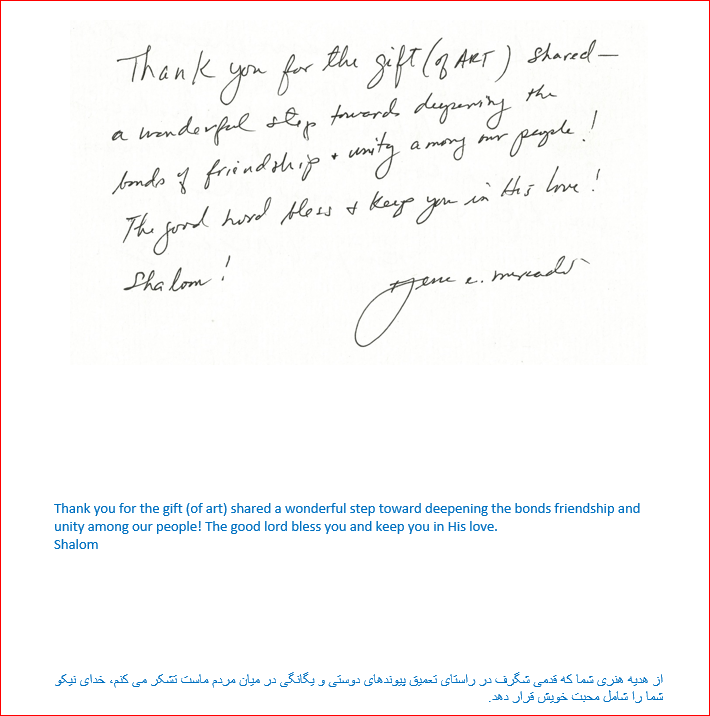 Thank you for the gift (of ART) shared—
a wonderful step towards deepening the
bonds of friendship + unity among our people!
The good Lord bless & keep you in His love!
Shalom!
Thank you for the gift (of art) shared a wonderful step toward deepening the bonds friendship and
unity among our people! The good lord bless you and keep you in His love.
Shalom
از هدیه هنری شما که قدمی شگرف در راستای تعمیق پیوندهای دوستی و یگانگی در میان مردم ماست تشکر می کنم، خدای نیکو
شما را شامل محبت خویش قرار دهد.